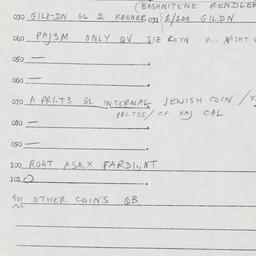 (BASHNITENE RENDLER
030 GILD-DN GL 2 KRONER 031 1/100 GILDN
040 PAJ3M ONLY QV SIZ RGYN P... NISHT
050 —
060 —
070 A PRI.T3 GL INTERNAL JEWISH COIN / X
PRI.TSS / CF XAJ CAL
080 —
090 —
100 ROHT ASA.X FARDI.,NT
101
901 OTHER COINS QB